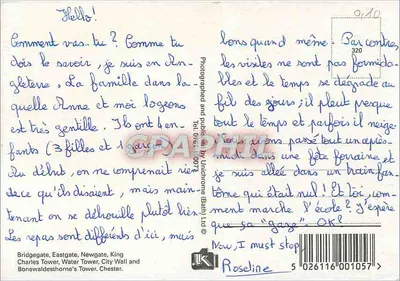 Hello!
Comment vas-tu? Comme tu
dois le savoir, je suis en An-
gleterre. La famille dans la-
quelle Anne et moi logeons
est très gentille. Ils ont 4 en-
fants (3 filles et 1 garçon).
Au début, on ne comprenait rien
de ce qu'ils disaient, mais main-
tenant on se débrouille plutôt bien.
Les repas sont différents d'ici, mais
Bridgegate, Eastgate, Newgate, King
Charles Tower, Water Tower, City Wall and
Bonewaldesthorne's Tower, Chester.
Photographed and published by Unichrome (Bath) Ltd ©
0,10
320
bons quand même. Par contre,
les visites ne sont pas formida-
bles et le temps se dégrade au
fil des jours; il pleut presque
tout le temps et parfois il neige.
nous avons passé tout un après-
midi dans une fête foraine et
je suis allée dans un train fan-
tôme qui était nul! Et toi, com-
ment marche l'école? J'espère
que ça "gaze". OK?
Now, I must stop,
Roseline
5 026116 001057 >